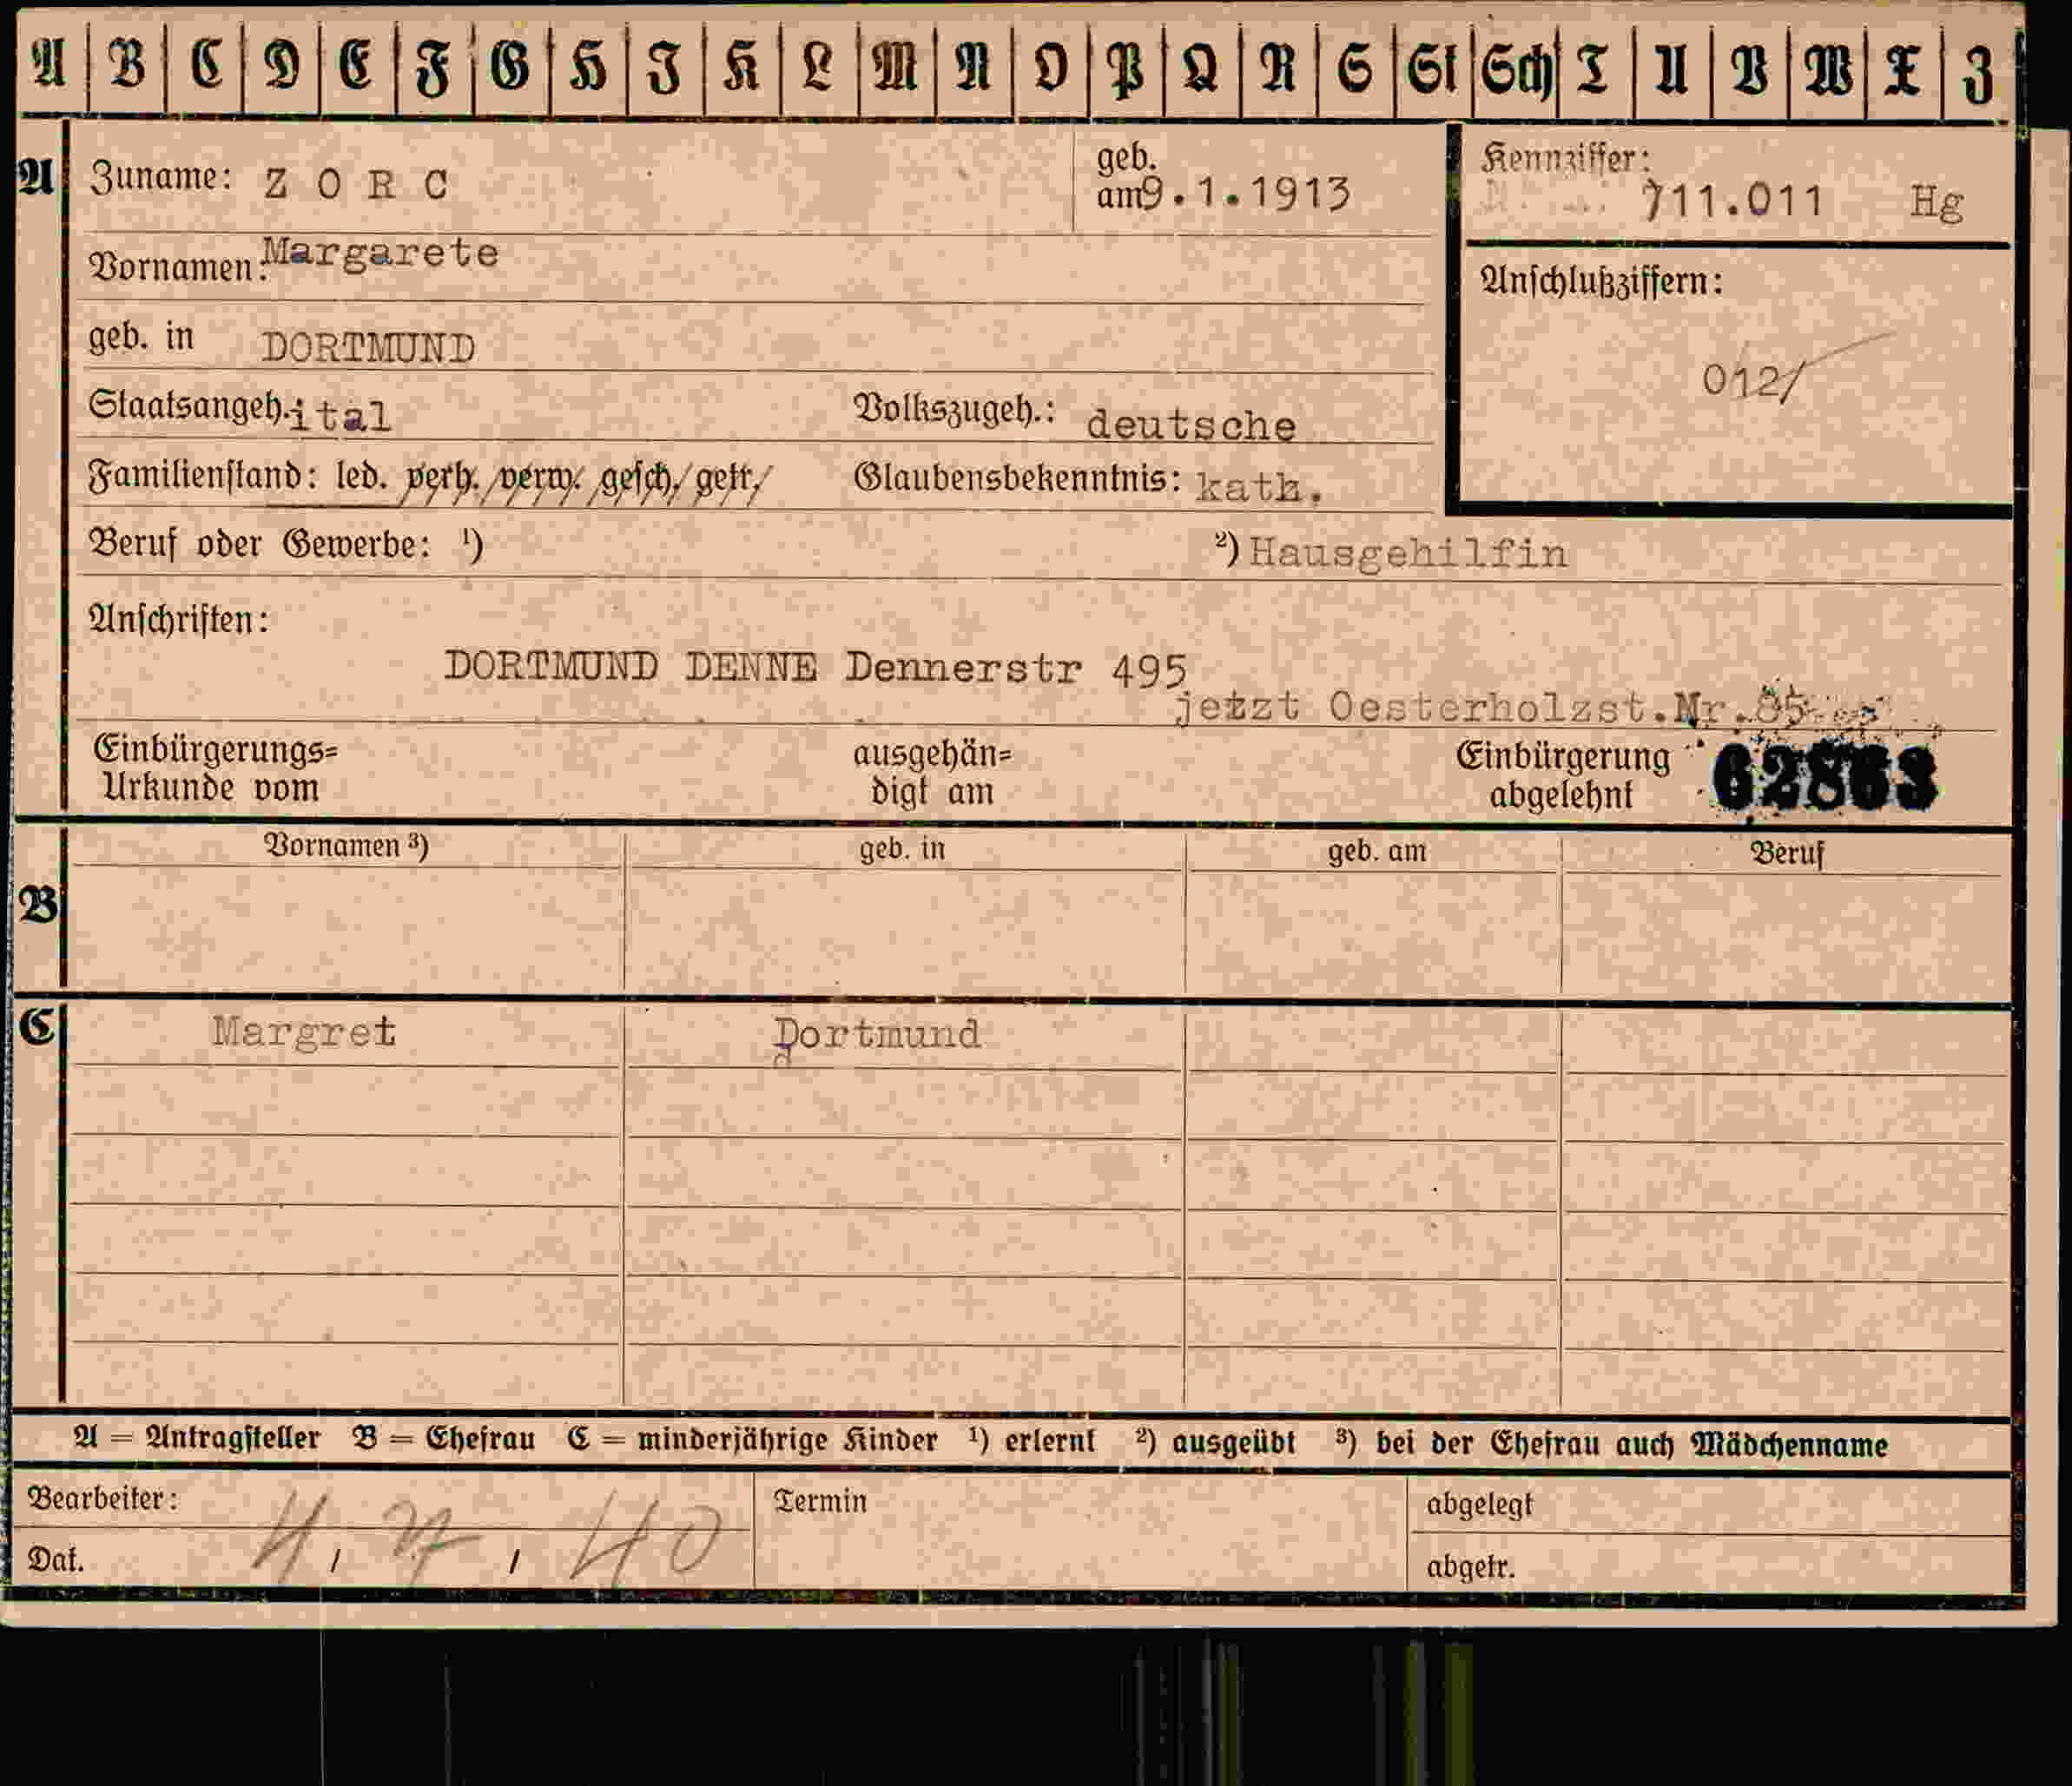 A B C D E F G H I K L M N O P Q R S St Sch T U V W X Z
A Zuname: ZORC geb. am 9.1.1913 Kennziffer: 711.011 Hg
Vornamen: Margarete
Anschlußziffern:
geb. in DORTMUND
012/
Staatsangeh. ital Volkszugeh.: deutsche
Familienstand: led. verh. verw. gesch. getr. Glaubensbekenntnis: kath.
Beruf oder Gewerbe: ¹) ²) Hausgehilfin
Anschriften:
DORTMUND DENNE Dennerstr 495
jetzt Oesterholzst.Nr.85
Einbürgerungs= ausgehän= Einbürgerung 62863
Urkunde vom digt am abgelehnt
Vornamen ³) geb. in geb. am Beruf
B
C Margret Dortmund
A = Antragsteller B = Ehefrau C = minderjährige Kinder ¹) erlernt ²) ausgeübt ³) bei der Ehefrau auch Mädchenname
Bearbeiter: Termin abgelegt
Dat. 4. 7. 40 abgetr.